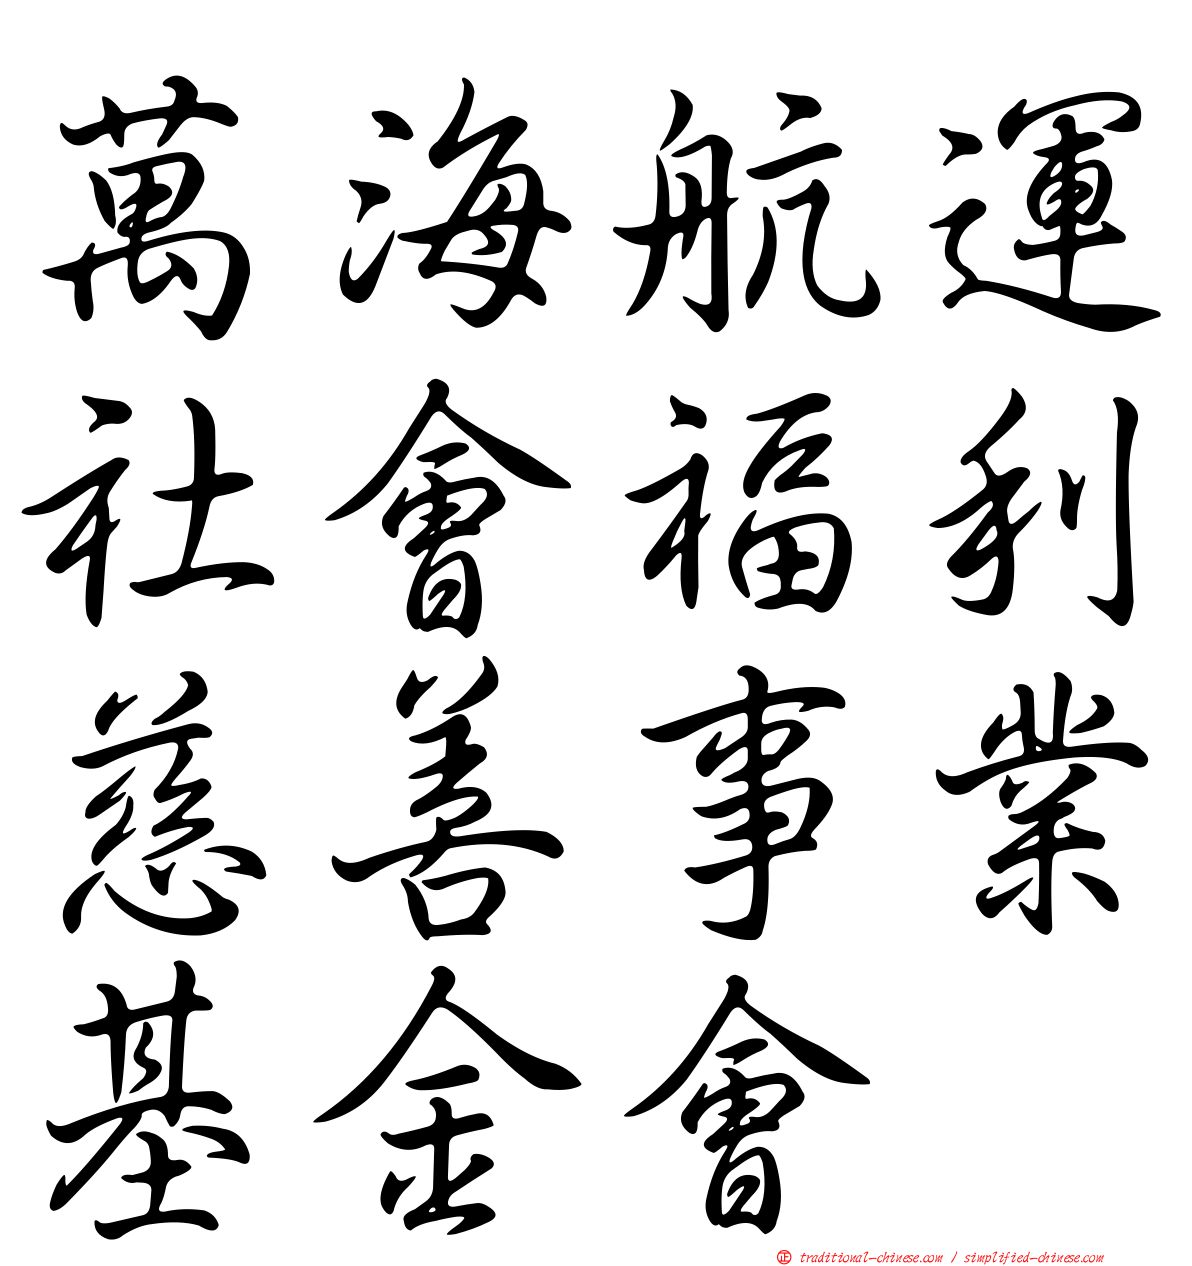 萬海航運
社會福利
慈善事業
基金會
正 traditional-chinese.com / simplified-chinese.com